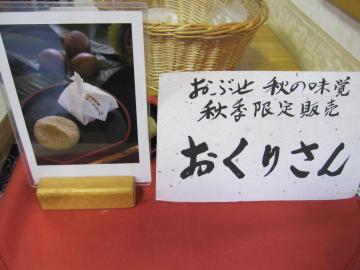 おぶせ 秋の味覚
秋季限定販売
おくりさん